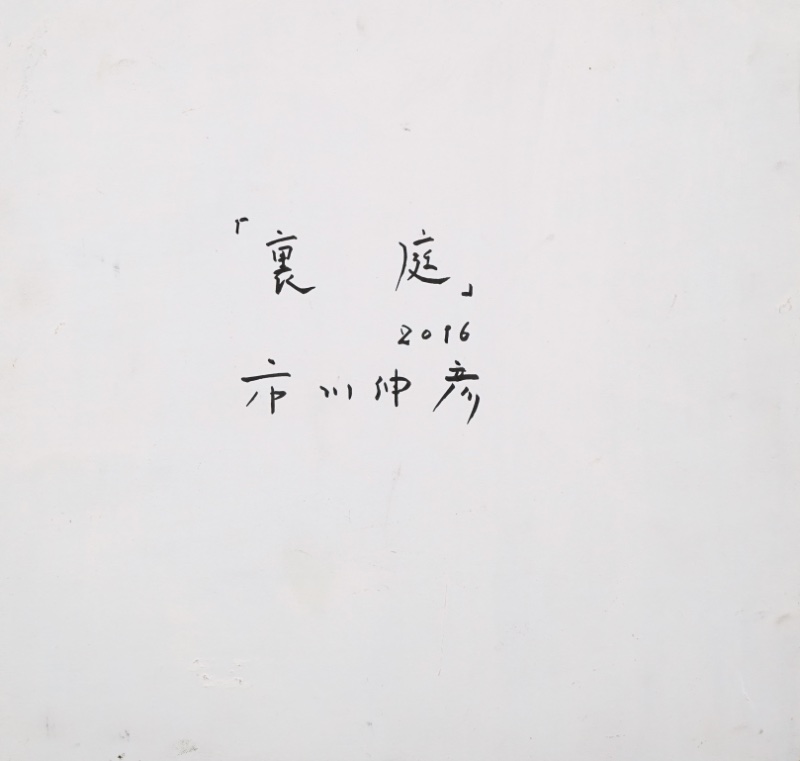 「裏 庭」
2016
市川伸彦